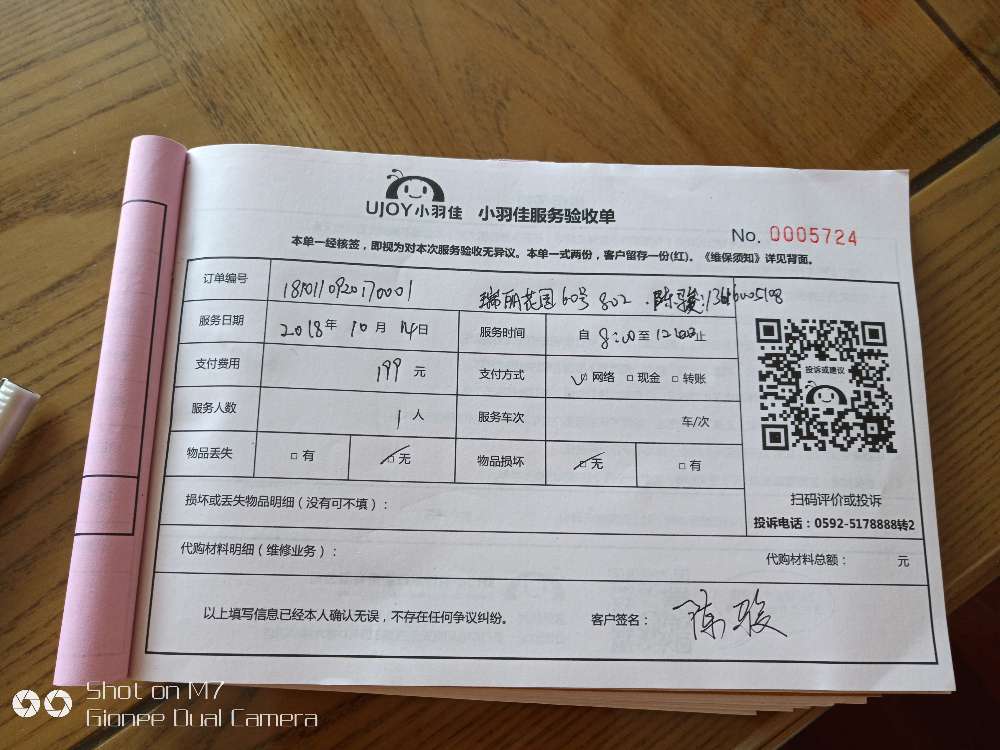 UJOY小羽佳 小羽佳服务验收单
No. 0005724
本单一经核签，即视为对本次服务验收无异议。本单一式两份，客户留存一份(红)。《维保须知》详见背面。
订单编号 瑞丽花园60号802 . 陈骏:
服务日期 2018年 10月 14日 服务时间 自 8:00至 12:00止
支付费用 199 元 支付方式 网络 现金 转账
服务人数 1 人 服务车次 车/次
物品丢失 有 无 物品损坏 无 有
投诉或建议
扫码评价或投诉
投诉电话：0592-5178888转2
损坏或丢失物品明细（没有可不填）：
代购材料明细（维修业务）： 代购材料总额： 元
以上填写信息已经本人确认无误，不存在任何争议纠纷。 客户签名： 陈骏
Shot on M7
Gionee Dual Camera